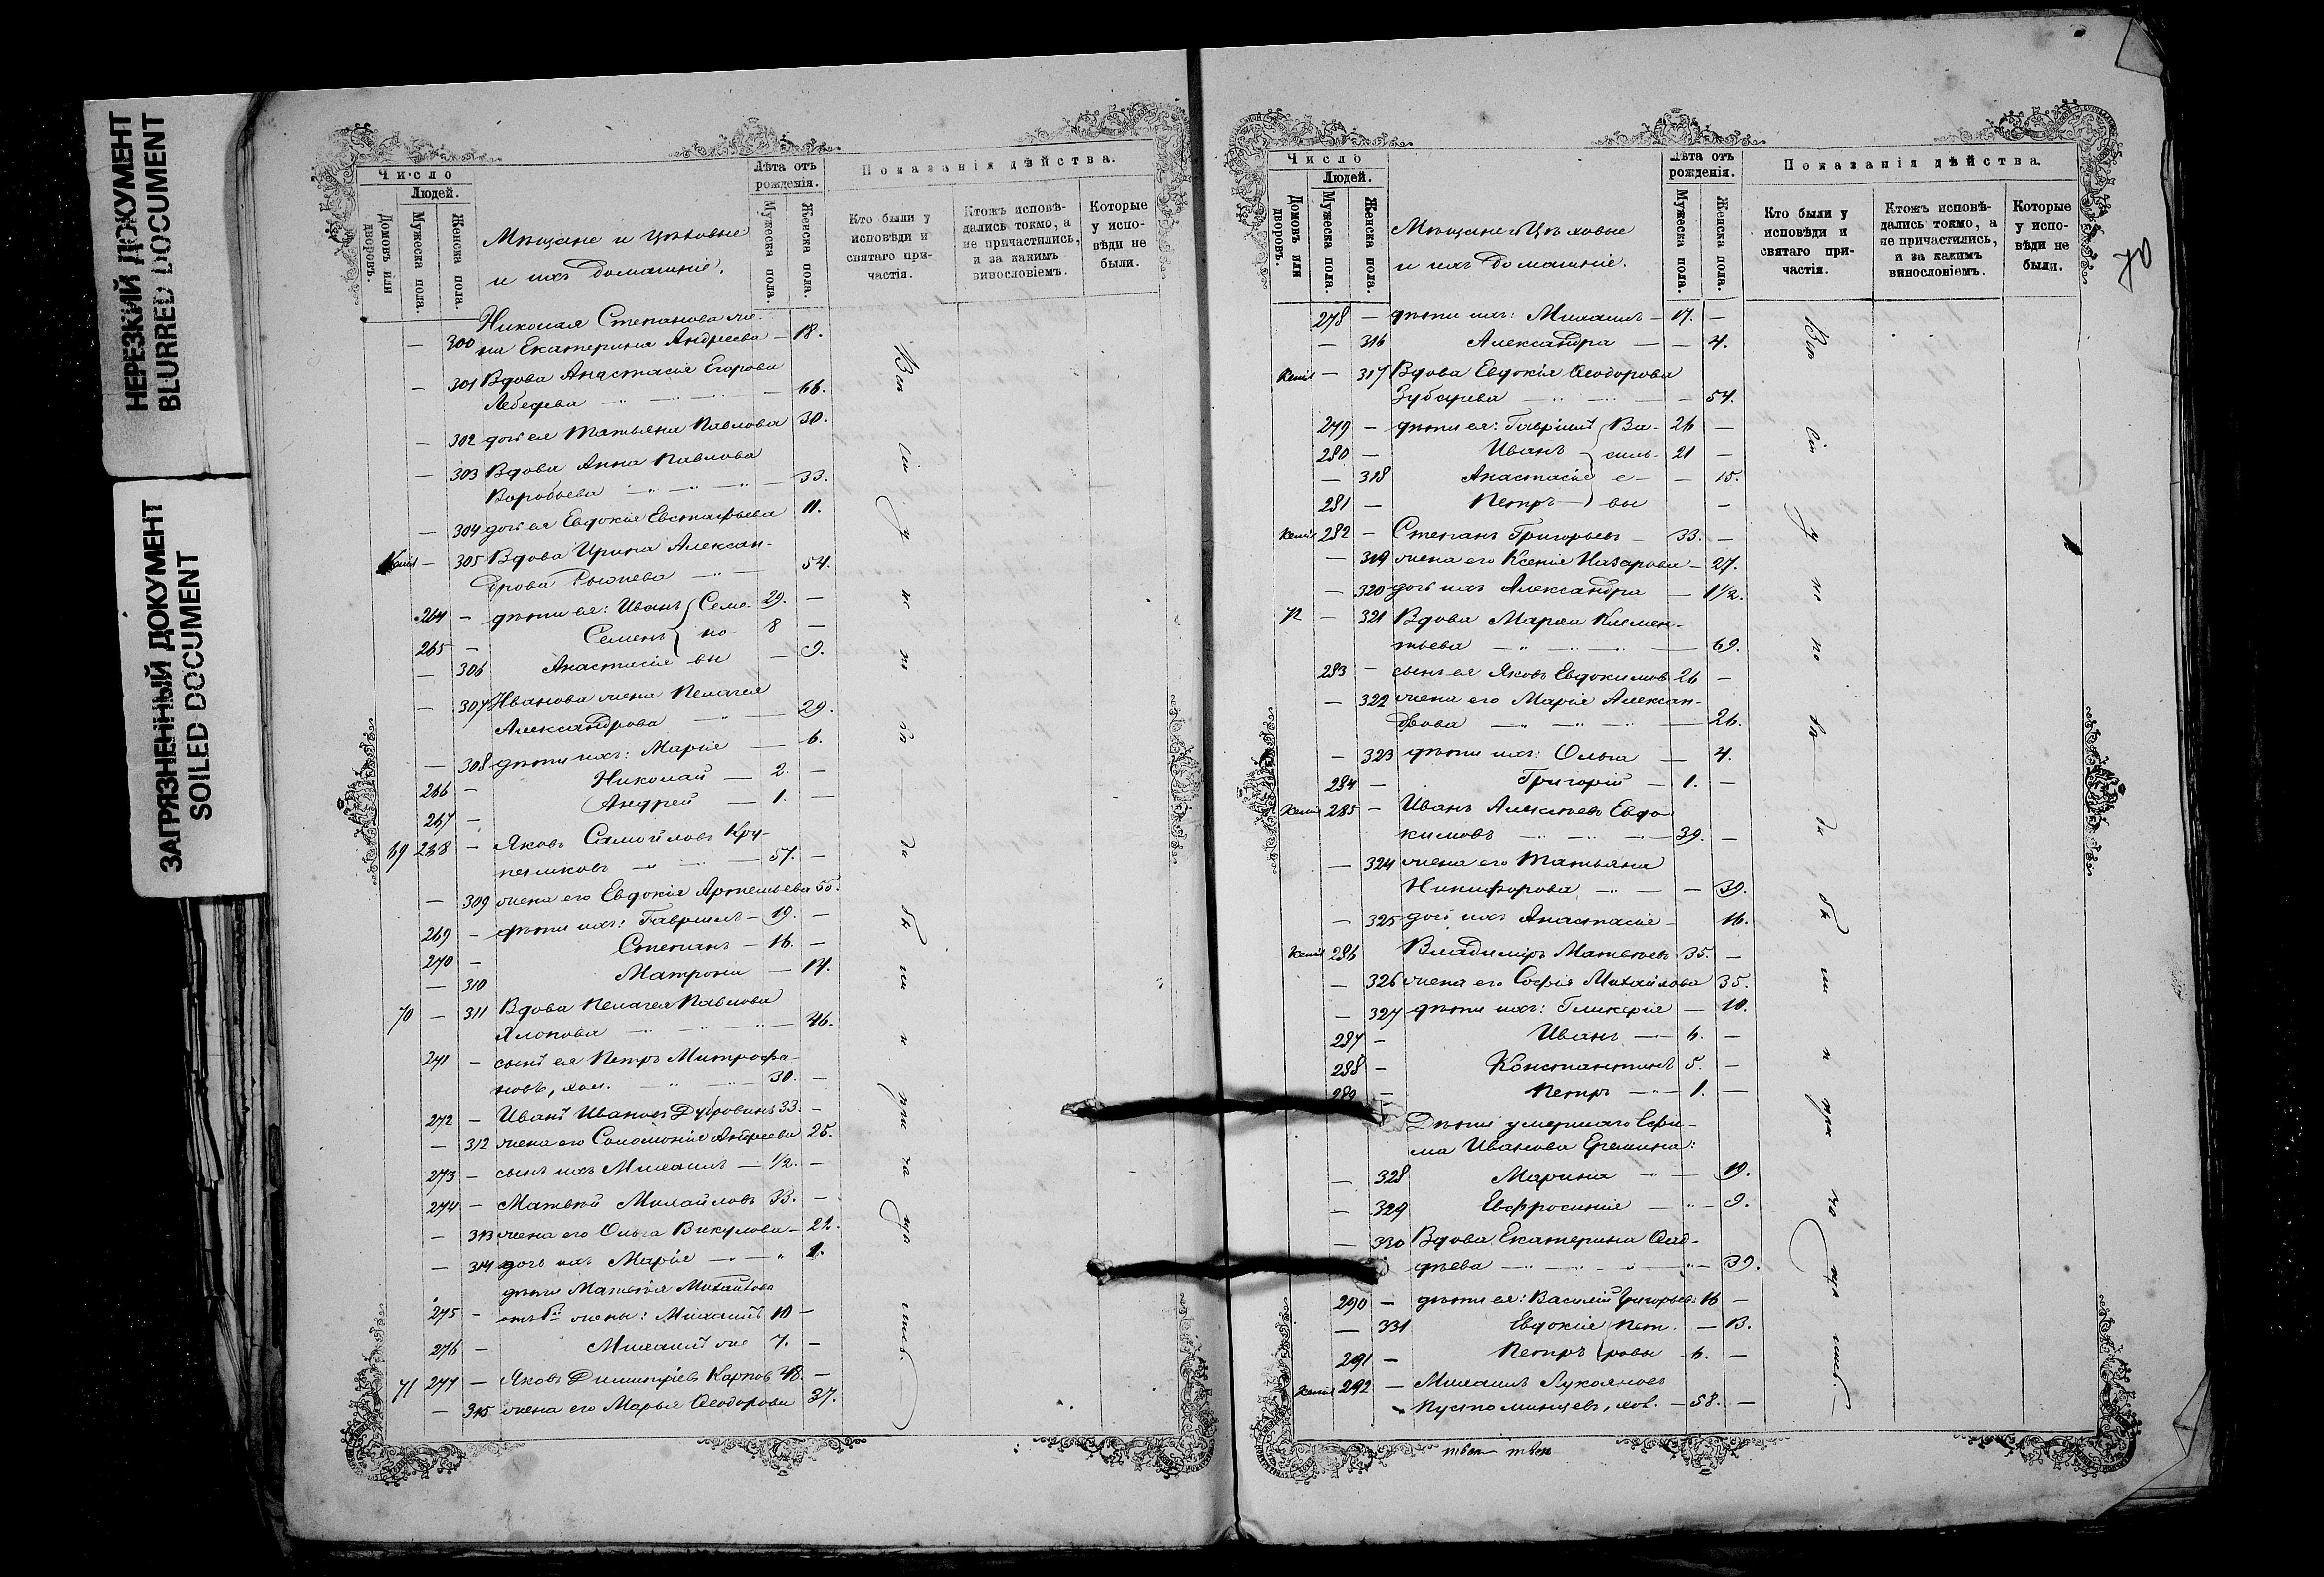 НЕРЕЗКИЙ ДОКУМЕНТ
BLURRED DOCUMENT
ЗАГРЯЗНЕННЫЙ ДОКУМЕНТ
SOILED DOCUMENT
Число
Людей.
Домовъ или дворовъ.
Мужеска пола.
Женска пола.
Мѣщане и цѣховые
и ихъ домашніе.
Лѣта отъ рожденія.
Мужеска пола.
Женска пола.
Показанія дѣйства.
Кто были у исповѣди и святаго причастія.
Ктожъ исповѣдались токмо, а не причастились, и за какимъ винословіемъ.
Которые у исповѣди не были.
Николая Степанова же-
— 300 на Екатерина Андреева — 18.
— 301 Вдова Анастасія Егорова
Лебедева — 66.
— 302 дочь ея Татьяна Павлова 30.
— 303 Вдова Анна Павлова
Воробьева — 33.
— 304 дочь ея Евдокія Евстафьева 11.
— 305 Вдова Ирина Алексан-
дрова — 54.
264 — дѣти ея: Иванъ Семе- 29. —
265 — Семенъ но- 8 —
— 306 Анастасія вы — 9.
— 307 Иванова жена Пелагея
Александрова — 29.
— 308 дѣти ихъ: Марія — 6.
266 — Николай — 2. —
267 — Андрей — 1. —
69 268 — Яковъ Самойловъ Кру-
пениковъ — 57. —
— 309 жена его Евдокія Артемьева 55.
269 — дѣти ихъ: Гавріилъ — 19. —
270 — Степанъ — 16. —
— 310 Матрона — 14.
70 — 311 Вдова Пелагея Павлова
Хлопова — 46.
271 — сынъ ея Петръ Митрофа-
новъ, хол. — 30. —
272 — Иванъ Ивановъ Дубровинъ 33. —
— 312 жена его Соломонія Андреева 25.
273 — сынъ ихъ Михаилъ — 1/2. —
274 — Матвѣй Михайловъ 33. —
— 313 жена его Ольга Викулова — 22.
— 314 дочь ихъ Марія — 1.
дѣти Матвѣя Михайлова
275 — отъ 1й жены: Михаилъ 10 —
276 — Михаилъ же 7. —
71 277 — Яковъ Димитріевъ Карповъ 48. —
— 315 жена его Марья Ѳеодорова 37.
Всѣ сіи у исповѣди были и причащались.
70
Число
Людей.
Домовъ или дворовъ.
Мужеска пола.
Женска пола.
Мѣщане и Цѣховые
и ихъ домашніе.
Лѣта отъ рожденія.
Мужеска пола.
Женска пола.
Показанія дѣйства.
Кто были у исповѣди и святаго причастія.
Ктожъ исповѣдались токмо, а не причастились, и за какимъ винословіемъ.
Которые у исповѣди не были.
278 — дѣти ихъ: Михаилъ — 17. —
— 316 Александра — — 4.
— 317 Вдова Евдокія Ѳеодорова
Зубарева — 54.
279 — дѣти ея: Гавріилъ Ва- 26 —
280 — Иванъ силь- 21 —
— 318 Анастасія е- — 15.
281 — Петръ — вы —
282 — Степанъ Григорьевъ — 33. —
— 319 жена его Ксенія Назарова — 27.
— 320 дочь ихъ Александра — 1 1/2.
72 — 321 Вдова Марѳа Клемен-
тьева — 69.
283 — сынъ ея Яковъ Евдокимовъ 26 —
— 322 жена его Марія Алексан-
дрова — 26.
— 323 дѣти ихъ: Ольга — 4.
284 — Григорій — 1. —
285 — Иванъ Алексѣевъ Евдо-
кимовъ — 39. —
— 324 жена его Татьяна
Никифорова — 39.
— 325 дочь ихъ Анастасія — 16.
286 Владиміръ Матвѣевъ 35. —
— 326 жена его Софія Михайлова 35.
— 327 дѣти ихъ: Гликерія — 10.
287 — Иванъ — 6. —
288 — Константинъ 5. —
289 — Петръ — 1. —
Дѣти умершаго Ефи-
ма Иванова Еремина:
— 328 Марина — 19.
— 329 Евфросинія — 9.
— 330 Вдова Екатерина Ѳад-
дѣева — 39.
290 — дѣти ея: Василій Григорьевъ 16 —
— 331 Евдокія Пет- — 13.
291 — Петръ ровы — 6. —
292 — Михаилъ Лукояновъ
Пустоминцевъ, хол. — 58. —
Всѣ сіи у исповѣди были и причащались.